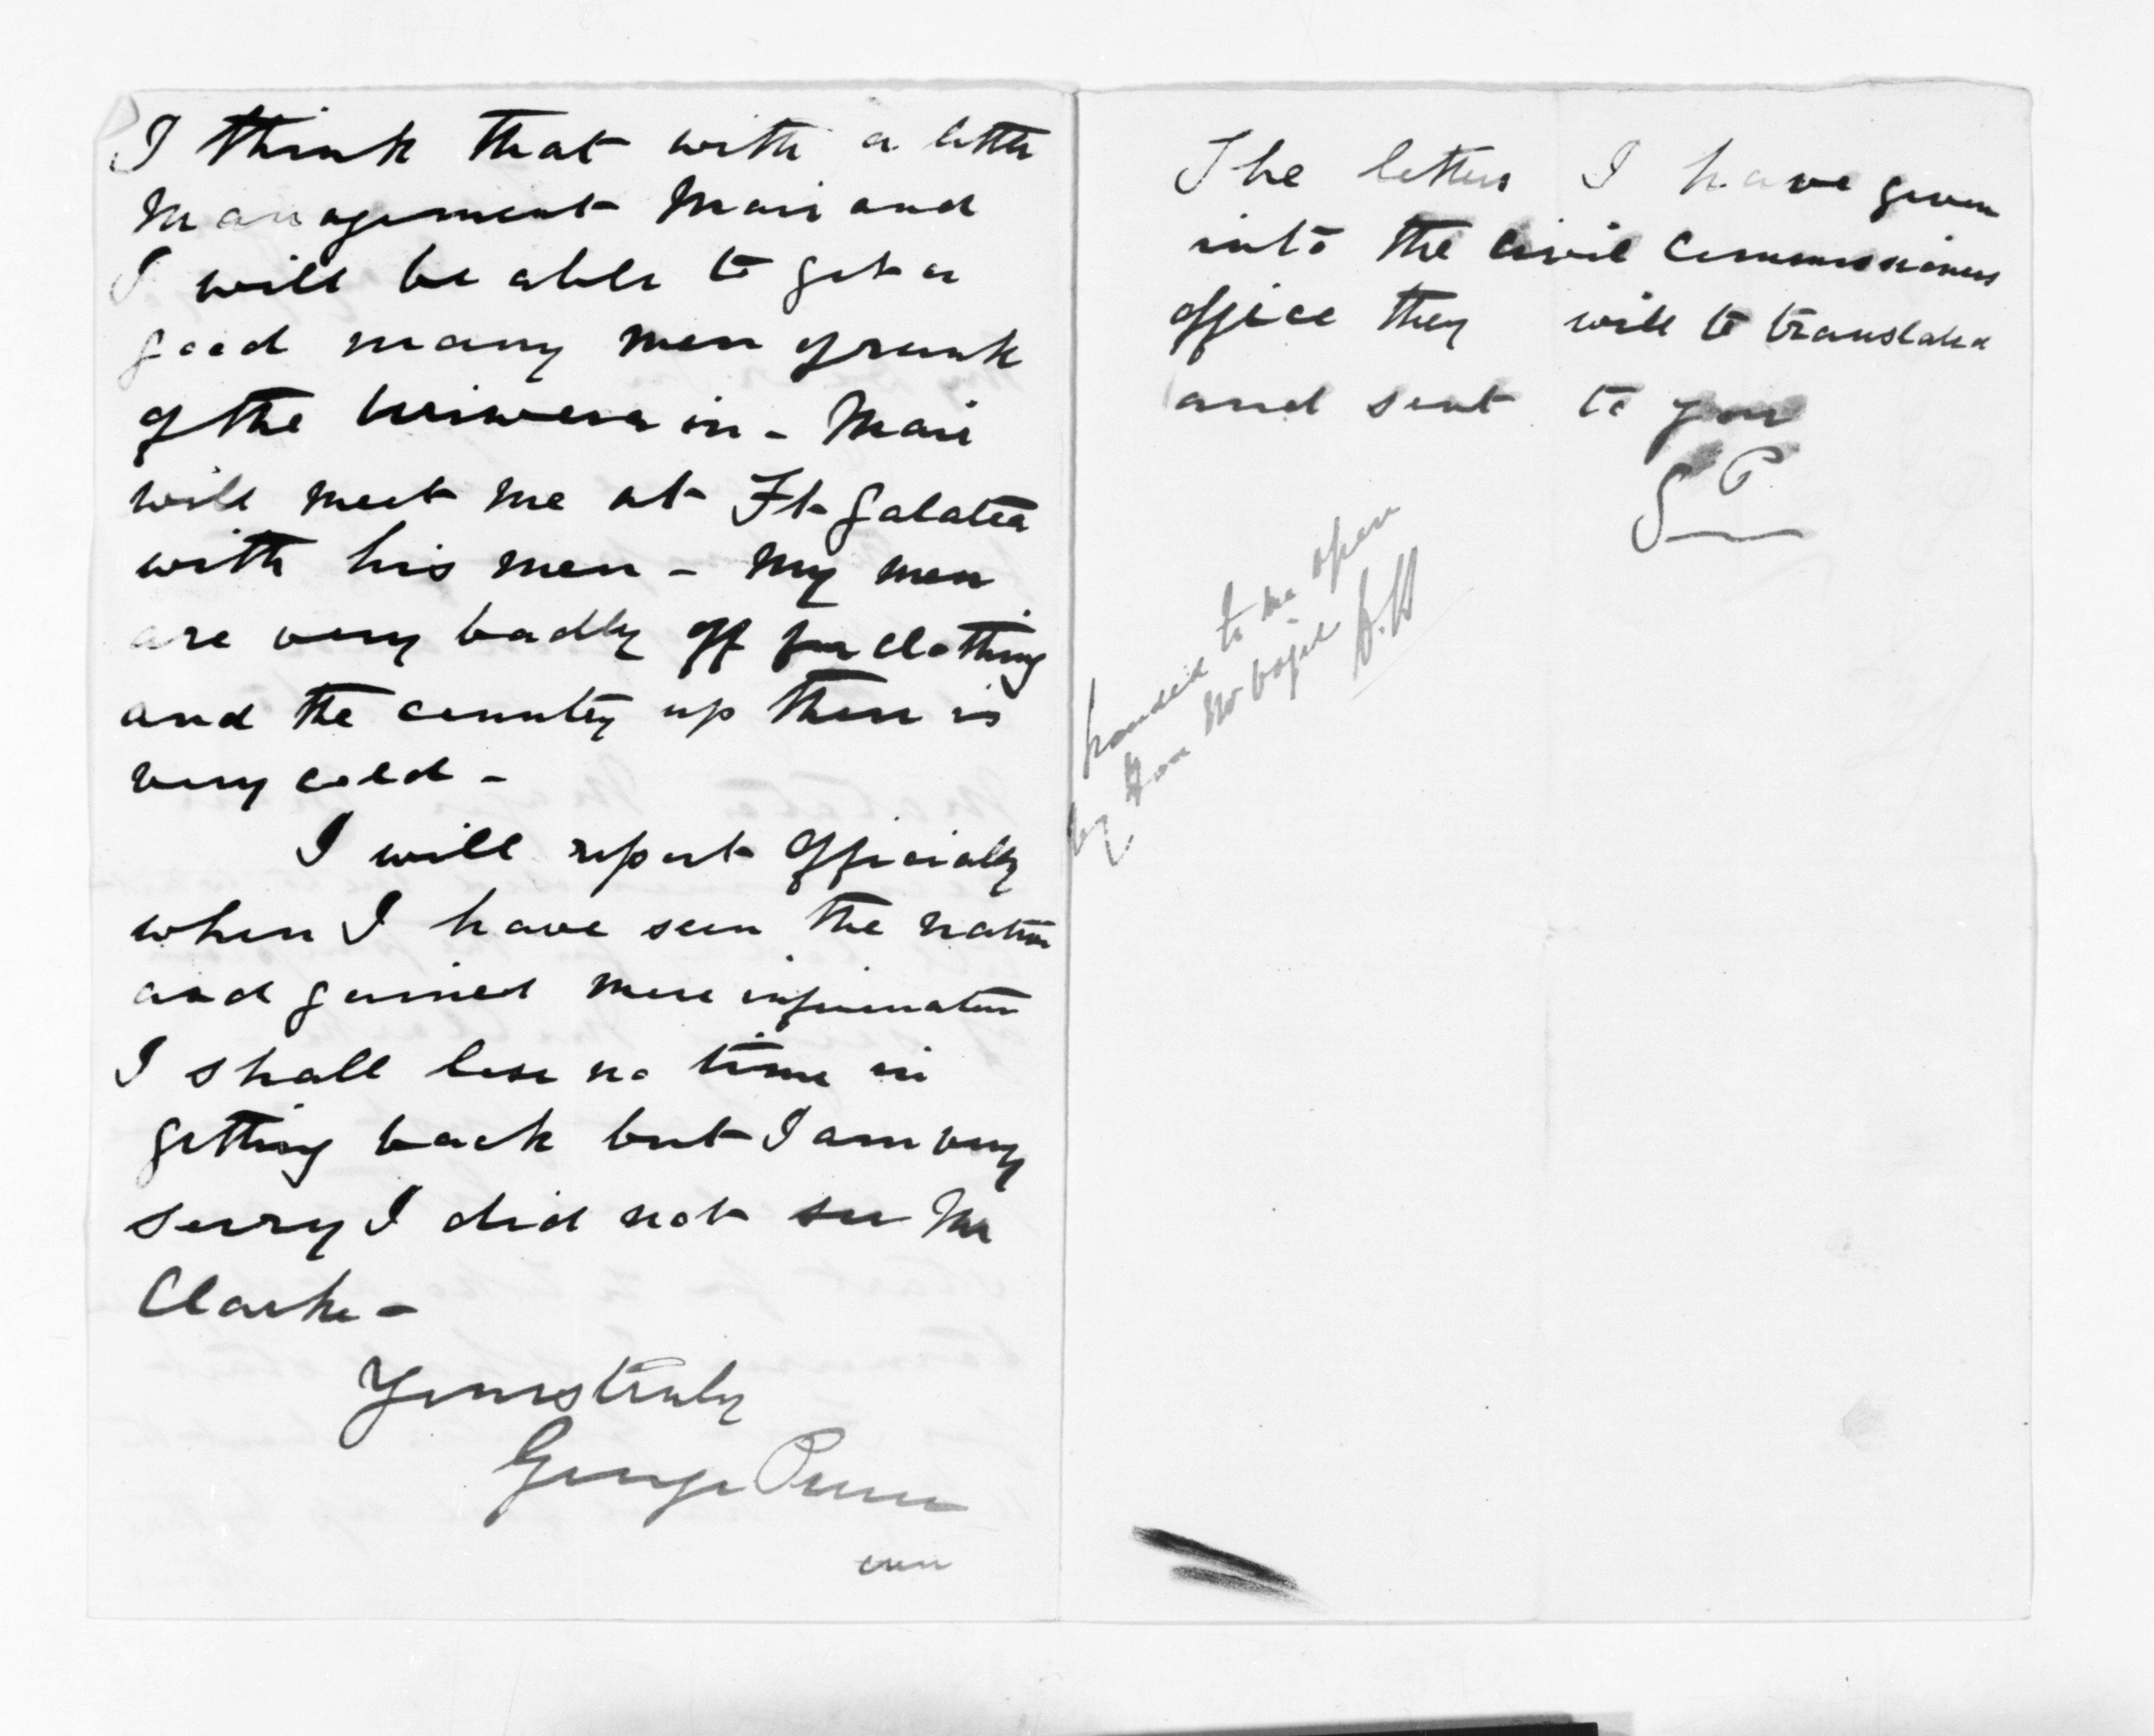 I think that with a little
Management Mair and
I will be able to get a
good many men of rank
of the Uriwera in - Mair
will meet me at Ft Galatea
with his men - My men
are very badly off for clothing
and the country up there is
very cold -
I will report officially
when I have seen the natives
and gained more information
I shall lose no time in
getting back but I am very
sorry I did not see Mr
Clarke -
Yours truly
George Preece
over
The letters I have given
into the Civil Commissioners
office they will to translated
and sent to you
G P
handed to me open
by Hon